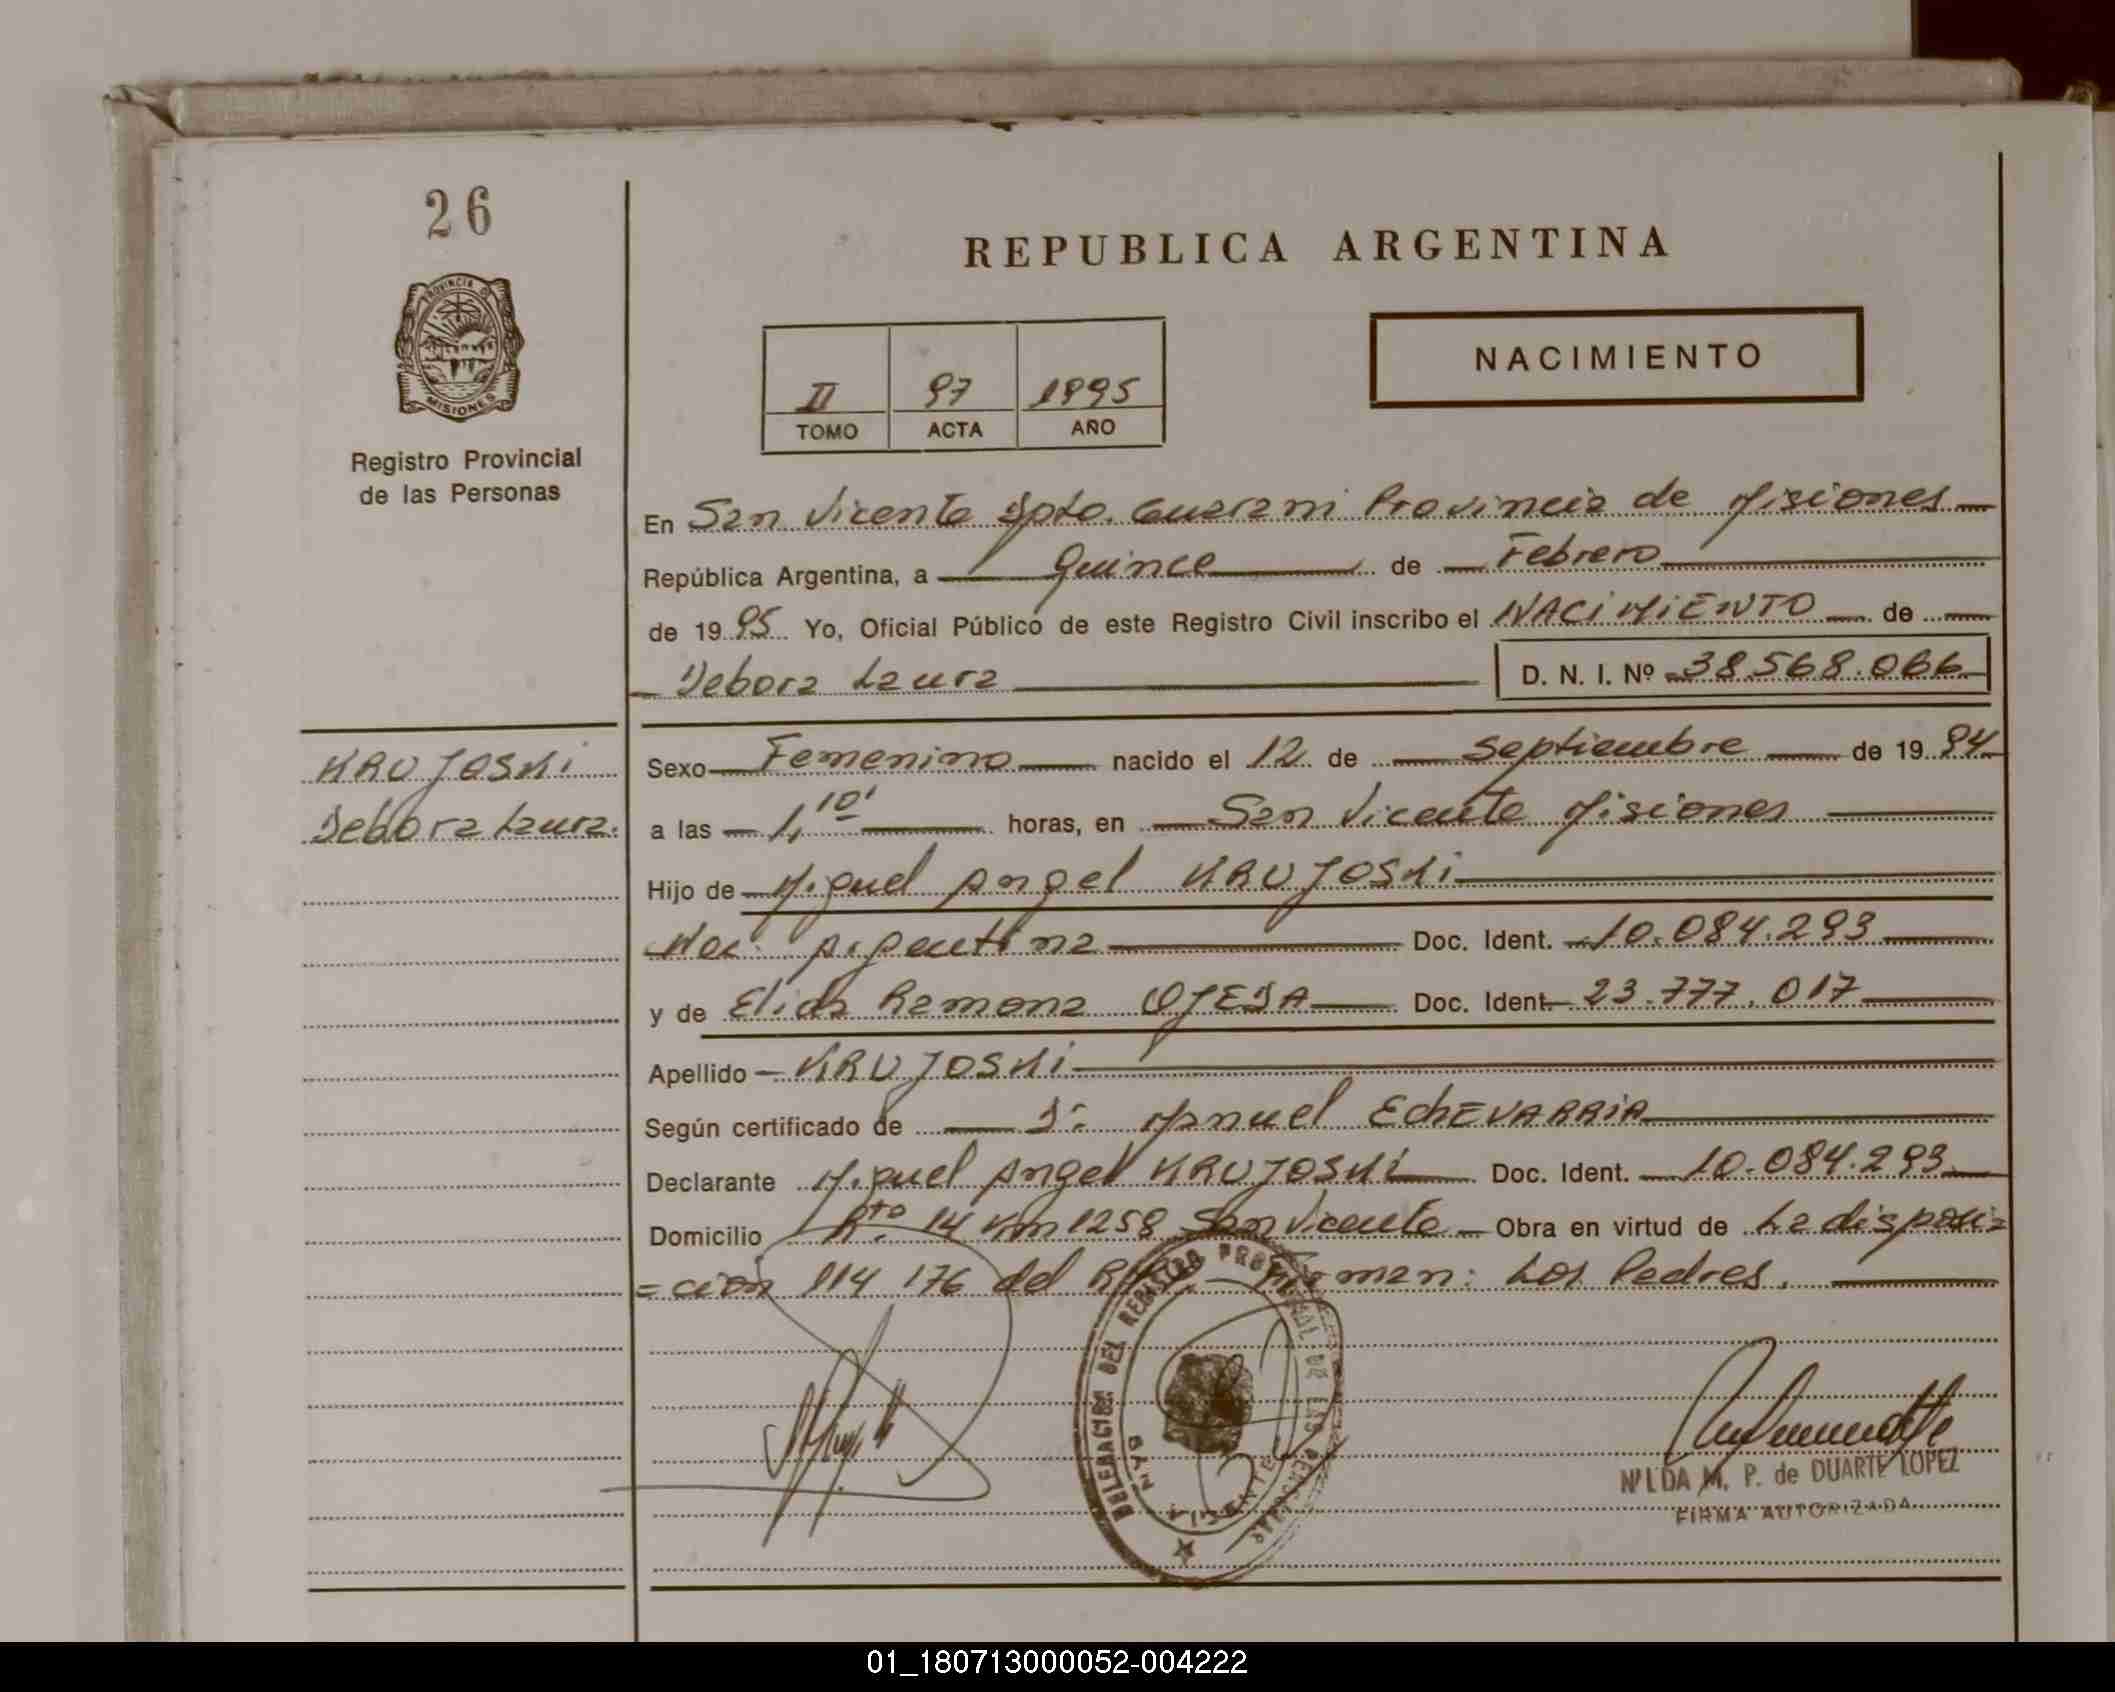 26
REPUBLICA ARGENTINA
PROVINCIA DE
MISIONES
Registro Provincial
de las Personas
NACIMIENTO
II 97 1995
TOMO ACTA AÑO
En San Vicente Dpto. Guarani Provincia de Misiones
República Argentina, a Quince de Febrero
de 1995 Yo, Oficial Público de este Registro Civil inscribo el NACIMIENTO de
Debora Laura D. N. I. Nº 38568.066
KRUJOSKI
Debora Laura.
Sexo Femenino nacido el 12 de Septiembre de 1994
a las 1,10' horas, en San Vicente Misiones
Hijo de Miguel Angel KRUJOSKI
Nac. Argentina Doc. Ident. 10.084.293
y de Elida Ramona OJEDA Doc. Ident 23.777.017
Apellido KRUJOSKI
Según certificado de Dr. Manuel EchEVARRIA
Declarante Miguel Angel KRUJOSKI Doc. Ident. 10.084.293
Domicilio Rta. 14 Km 1258 San Vicente Obra en virtud de La disposi=
=cion 114 176 del Firman: Los Padres.
DELEGACION DEL REGISTRO PROVINCIAL DE LAS PERSONAS
SAN VICENTE
NILDA M. P. de DUARTE LOPEZ
FIRMA AUTORIZADA
01_180713000052-004222